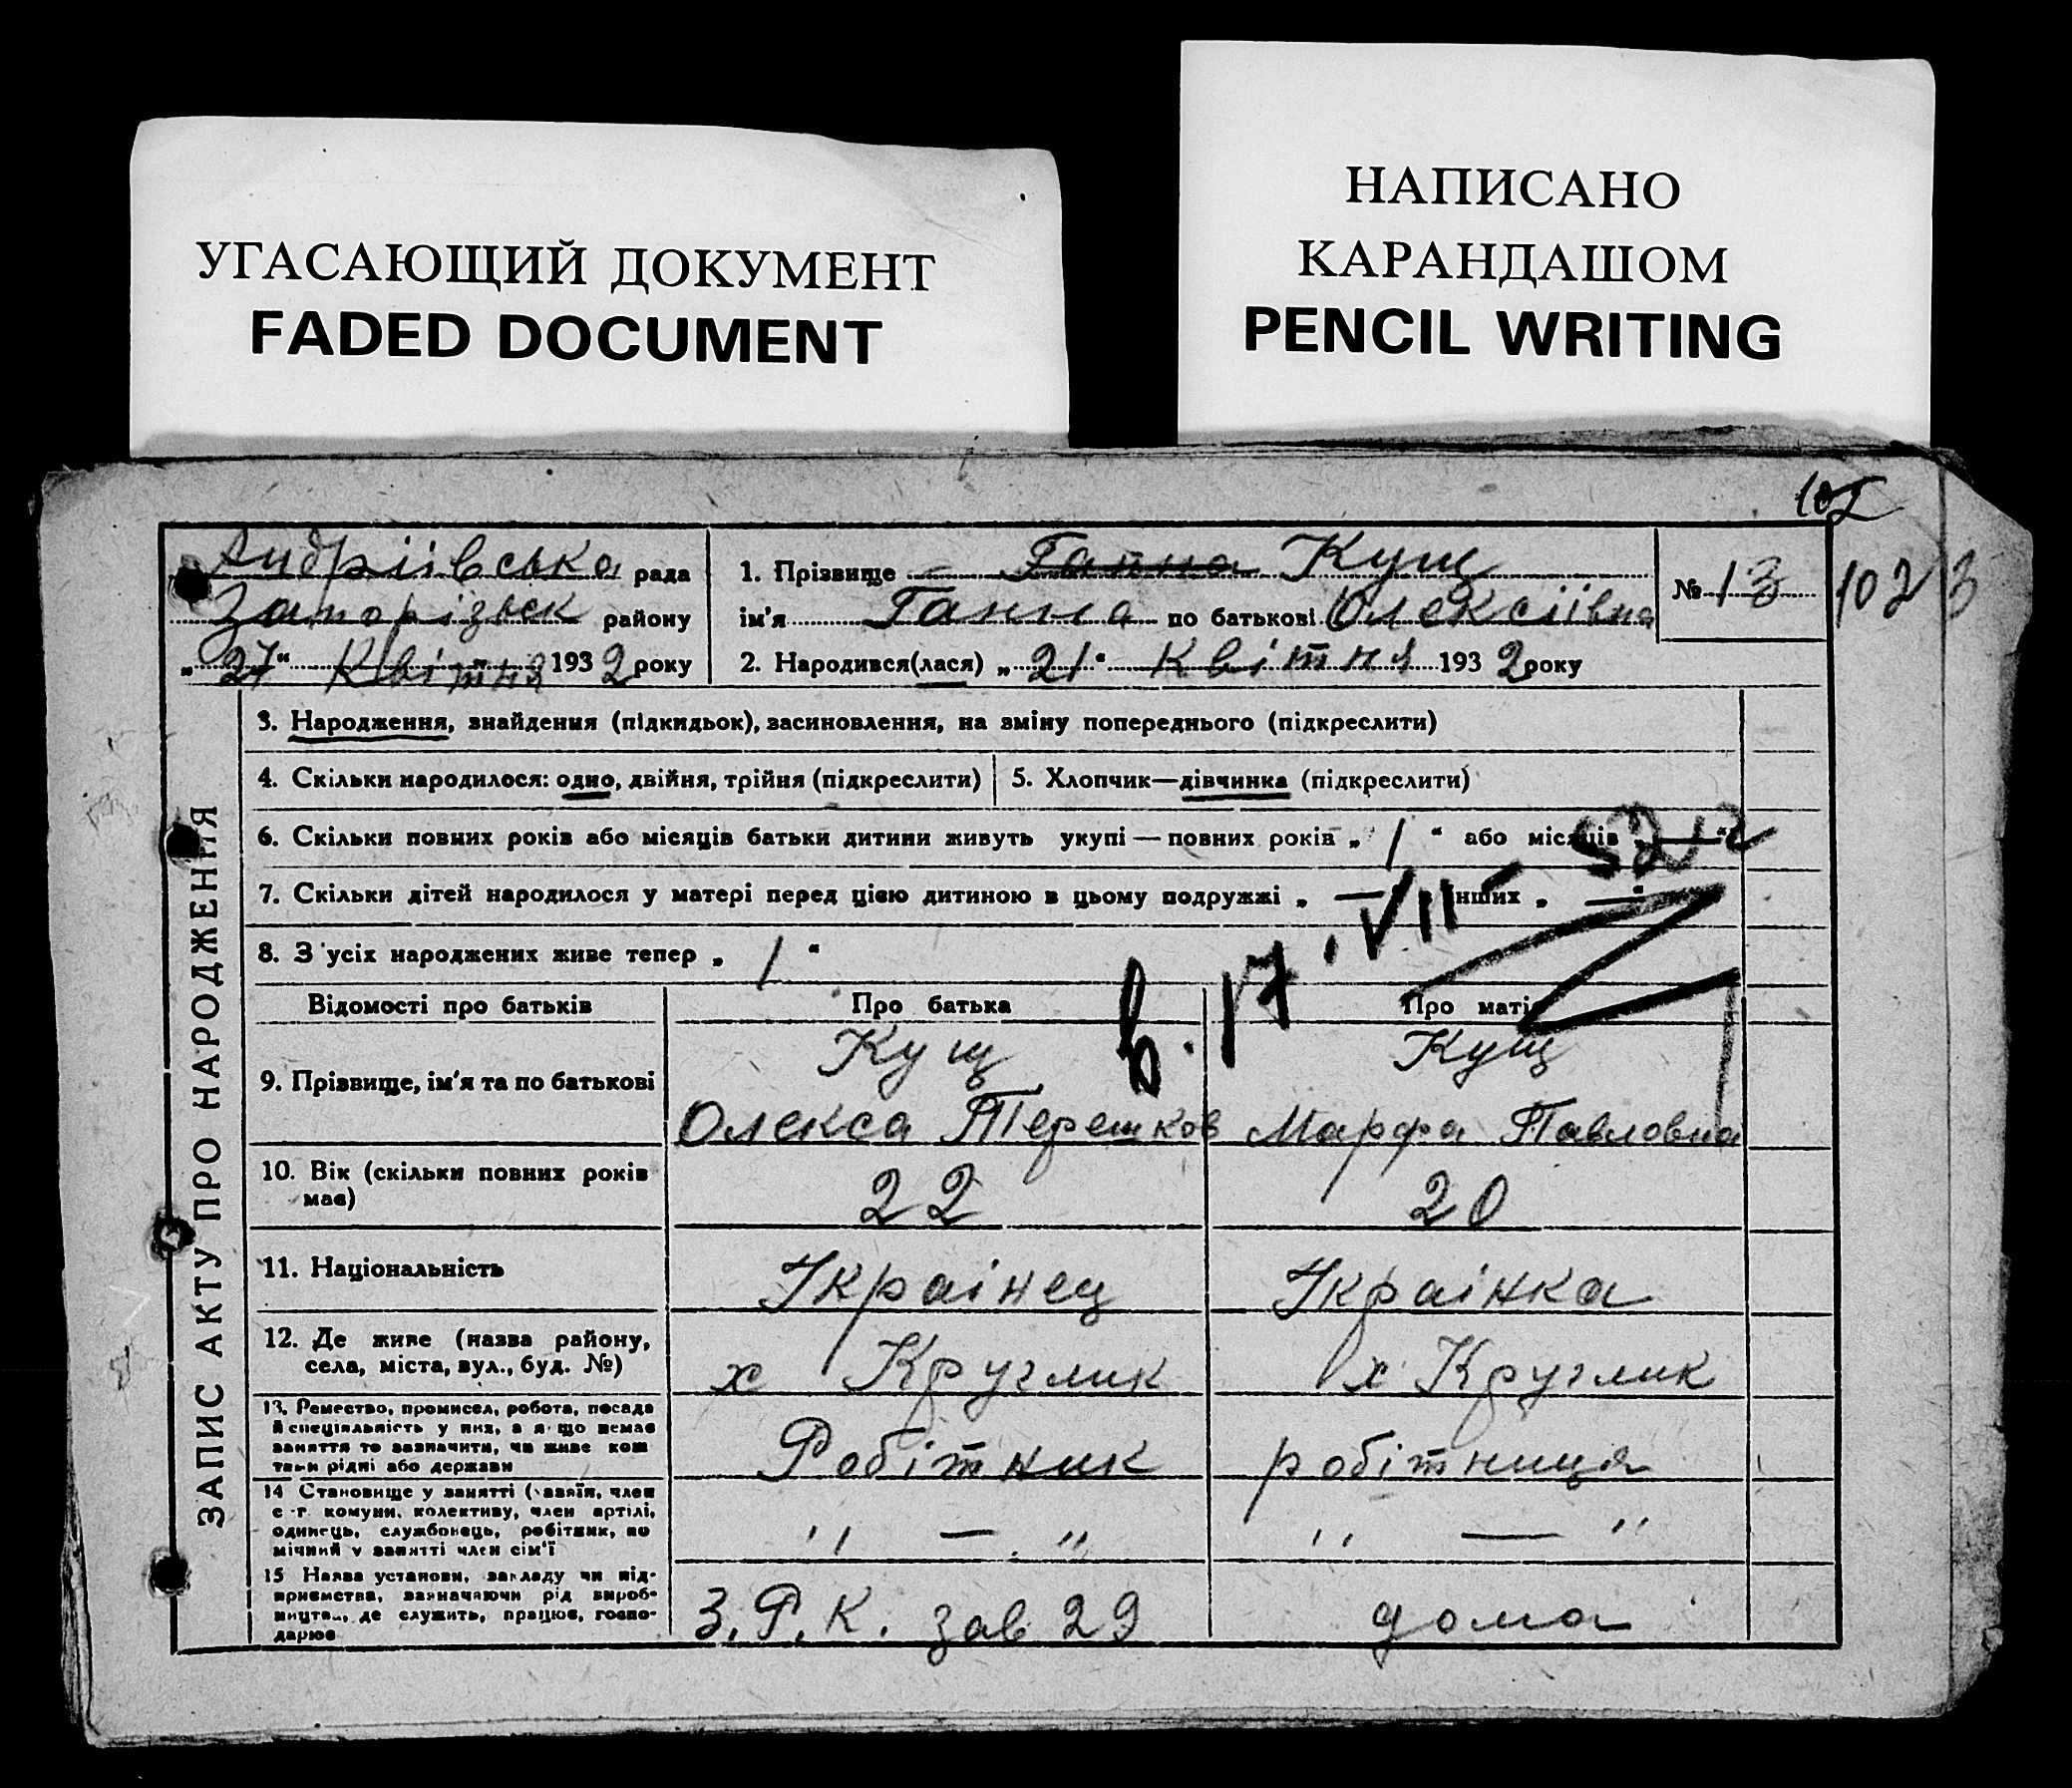 УГАСАЮЩИЙ ДОКУМЕНТ
FADED DOCUMENT
НАПИСАНО
КАРАНДАШОМ
PENCIL WRITING
102
Андріівська рада
Запорізьк району
„27“ Квітня 1932 року
1. Прізвище Ганна Кущ
ім'я Ганна по батькові Олексіівна
2. Народився(лася) „21“ Квітня 1932 року
№ 13
102 3
ЗАПИС АКТУ ПРО НАРОДЖЕННЯ
3. Народження, знайдення (підкидьок), засиновлення, на зміну попереднього (підкреслити)
4. Скільки народилося: одно, двійня, трійня (підкреслити)
5. Хлопчик—дівчинка (підкреслити)
6. Скільки повних років або місяців батьки дитини живуть укупі — повних років „ 1 “ або місяців „ — “
7. Скільки дітей народилося у матері перед цією дитиною в цьому подружжі „ — інших „ — “
8. З усіх народжених живе тепер „ 1 “
в. 17. VII
Відомості про батьків
Про батька
Про матір
9. Прізвище, ім'я та по батькові
Кущ
Олекса
Кущ
Марфа Павловна
10. Вік (скільки повних років
має)
22
20
11. Національність
Украінец
Украінка
12. Де живе (назва району,
села, міста, вул., буд. №)
х Круглик
х Круглик
13. Ремество, промисел, робота, посада
й спеціяльність у них, а якщо немає
заняття то зазначити, чи живе кош
тами рідні або держави
Робітник
робітниця
14 Становище у занятті (хазяїн, член
с-г комуни, колективу, член артілі,
одинець, службовець, робітник, по
мічний у занятті член сім'ї
" — "
" — "
15 Назва установи, закладу чи під-
приємства, зазначаючи рід вироб-
ництва, де служить, працює, госпо-
дарює
З.Р.К. зав 29
дома